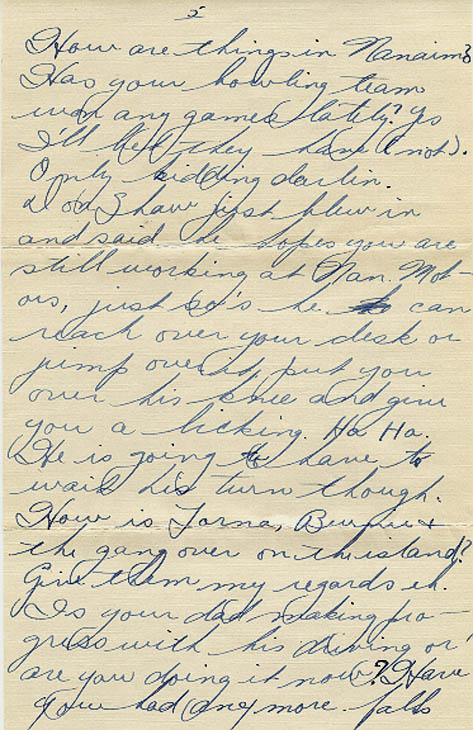 5
How are things in Nanaimo?
Has your bowling team
won any games lately? Yo
I'll bet they have (not).
Only kidding darlin.
Don Shaw just blew in
and said he hopes you are
still working at Nan. Mot-
ors, just so's he can
reach over your desk or
jump over it, put you
over his knee and give
you a licking. Ha Ha.
He is going to have to
wait his turn though.
How is Lorna, Bernie +
the gang over on the island?
Give them my regards eh.
Is your dad making pro-
gress with his driving or
are you doing it now? Have
you had any more falls